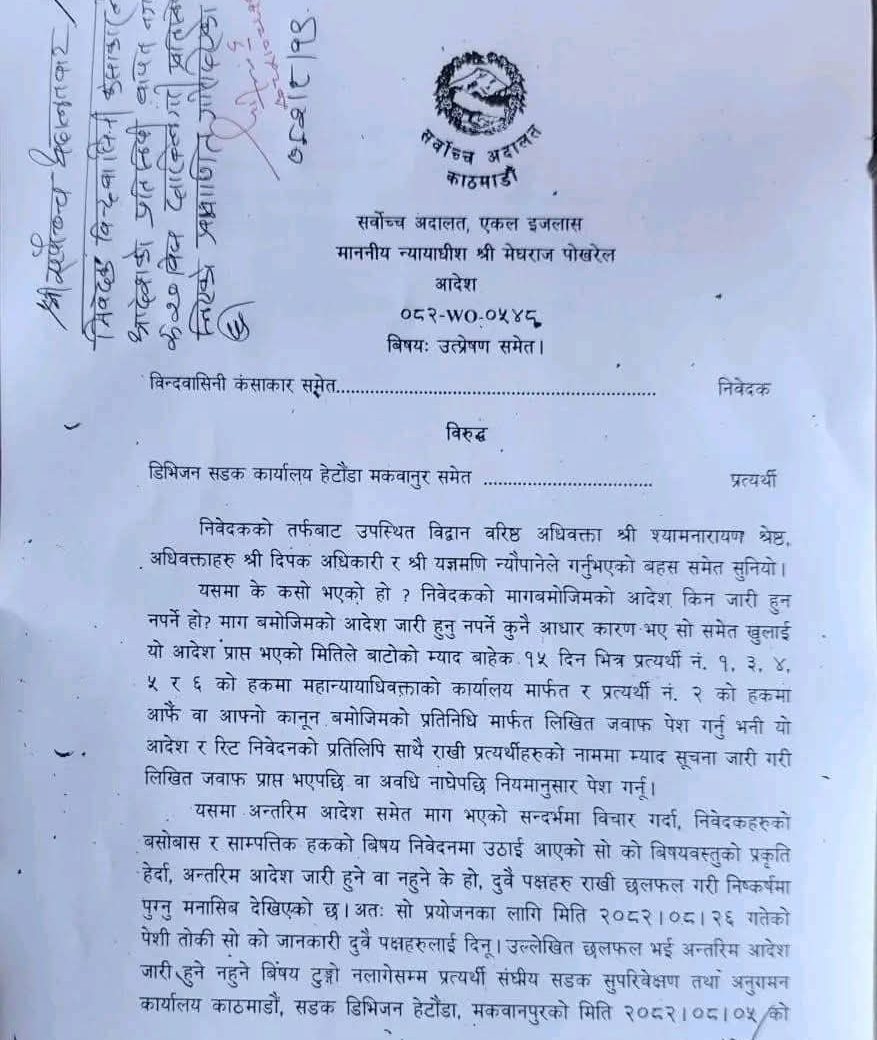 सर्वोच्च अदालत
काठमाडौं
सर्वोच्च अदालत, एकल इजलास
माननीय न्यायाधीश श्री मेघराज पोखरेल
आदेश
०८२-WO-०५४८
बिषयः उत्प्रेषण समेत।
विन्दवासिनी कंसाकार समेत........................................................ निवेदक
विरुद्ध
डिभिजन सडक कार्यालय हेटौंडा मकवानुर समेत ................................ प्रत्यर्थी
निवेदकको तर्फबाट उपस्थित विद्वान वरिष्ठ अधिवक्ता श्री श्यामनारायण श्रेष्ठ,
अधिवक्ताहरु श्री दिपक अधिकारी र श्री यज्ञमणि न्यौपानेले गर्नुभएको बहस समेत सुनियो।
यसमा के कसो भएको हो ? निवेदकको मागबमोजिमको आदेश किन जारी हुन
नपर्ने हो? माग बमोजिमको आदेश जारी हुनु नपर्ने कुनै आधार कारण भए सो समेत खुलाई
यो आदेश प्राप्त भएको मितिले बाटोको म्याद बाहेक १५ दिन भित्र प्रत्यर्थी नं. १, ३, ४,
५ र ६ को हकमा महान्यायाधिवक्ताको कार्यालय मार्फत र प्रत्यर्थी नं. २ को हकमा
आफैं वा आफ्नो कानून बमोजिमको प्रतिनिधि मार्फत लिखित जवाफ पेश गर्नु भनी यो
आदेश र रिट निवेदनको प्रतिलिपि साथै राखी प्रत्यर्थीहरुको नाममा म्याद सूचना जारी गरी
लिखित जवाफ प्राप्त भएपछि वा अवधि नाघेपछि नियमानुसार पेश गर्नू।
यसमा अन्तरिम आदेश समेत माग भएको सन्दर्भमा विचार गर्दा, निवेदकहरुको
बसोबास र साम्पत्तिक हकको बिषय निवेदनमा उठाई आएको सो को बिषयवस्तुको प्रकृति
हेर्दा, अन्तरिम आदेश जारी हुने वा नहुने के हो, दुवै पक्षहरु राखी छलफल गरी निष्कर्षमा
पुग्नु मनासिब देखिएको छ। अतः सो प्रयोजनका लागि मिति २०८२।०८।२६ गतेको
पेशी तोकी सो को जानकारी दुवै पक्षहरुलाई दिनू। उल्लेखित छलफल भई अन्तरिम आदेश
जारी हुने नहुने बिषय टुङ्गो नलागेसम्म प्रत्यर्थी संघीय सडक सुपरिवेक्षण तथा अनुगमन
कार्यालय काठमाडौं, सडक डिभिजन हेटौंडा, मकवानपुरको मिति २०८२।०८।०५ को